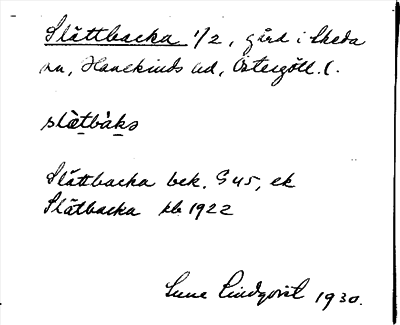 Slättbacka 1/2, gård i Skeda
sn, Hanekinds hd, Östergötl. l.
slä̀tbàka
Slättbacka bek. G45, ek
Slätbacka kb 1922
Sune Lindqvist 1930.